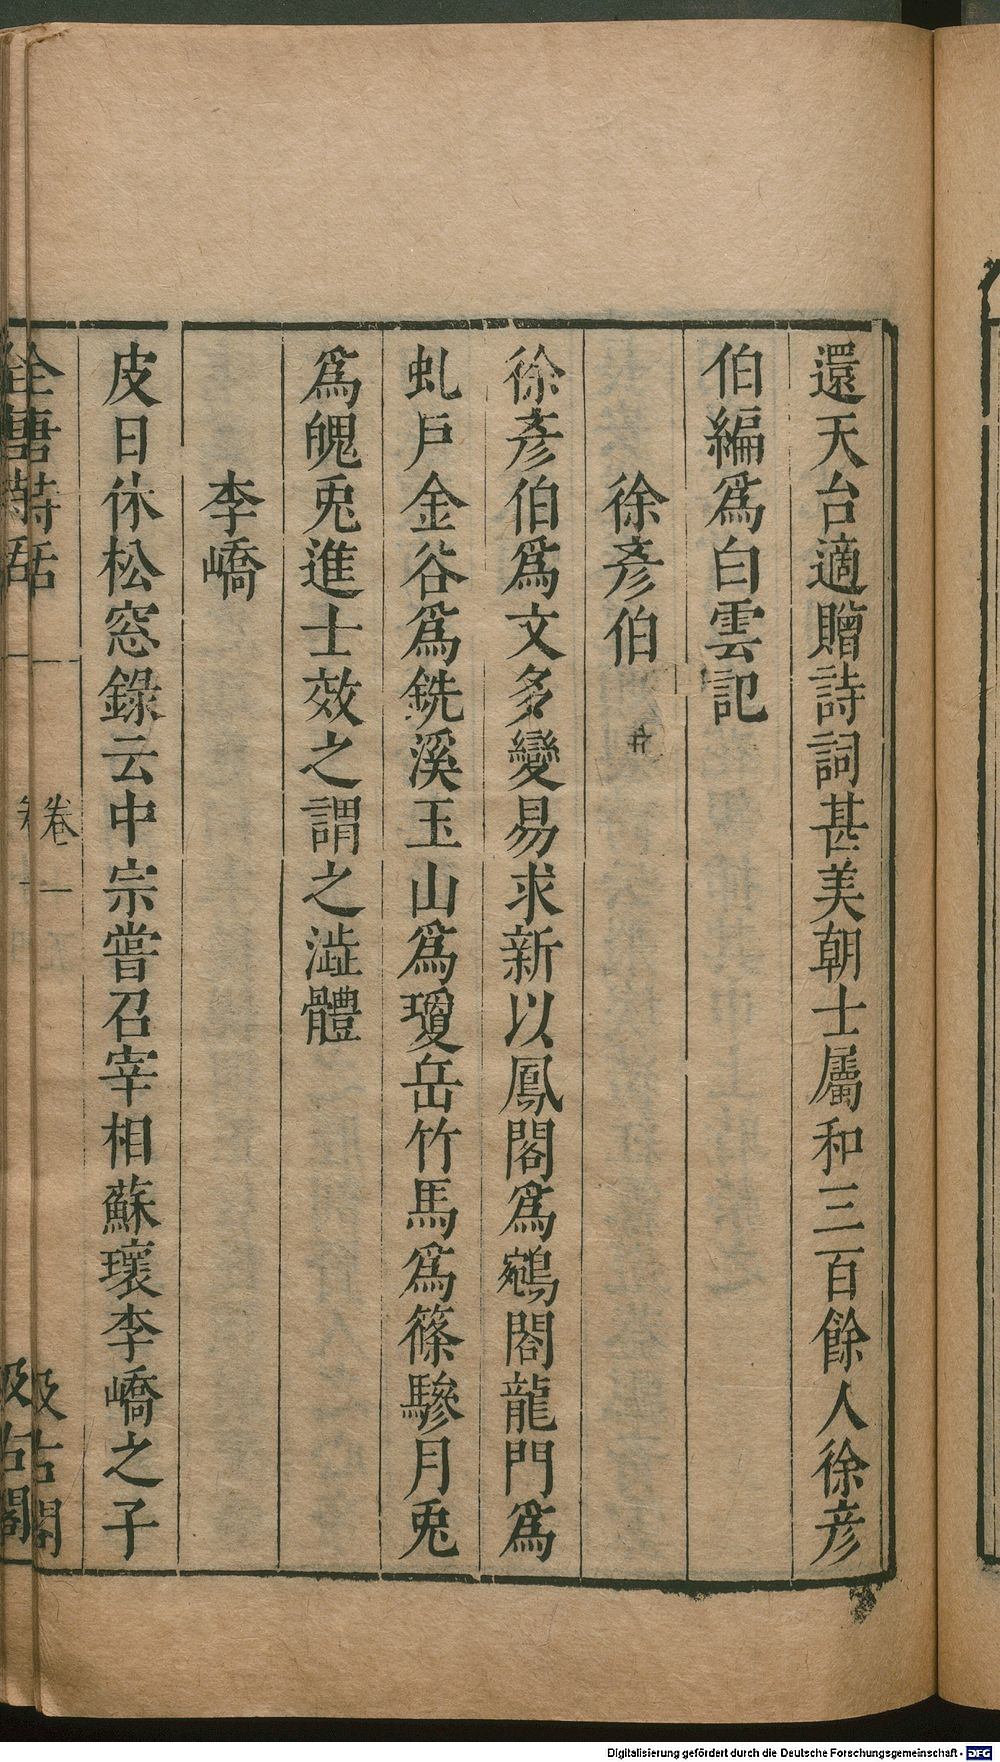 還天台適贈詩詞甚美朝士屬和三百餘人徐彦
伯編爲白雲記
徐彦伯
徐彥伯爲文多變易求新以鳳閣爲鵷閣龍門爲
虬戶金谷爲銑溪玉山爲瓊岳竹馬爲篠驂月兎
爲魄兎進士效之謂之澁體
李嶠
皮日休松窓錄云中宗嘗召宰相蘇瓌李嶠之子
全唐詩話 卷一
汲古閣
Digitalisierung gefördert durch die Deutsche Forschungsgemeinschaft - DFG